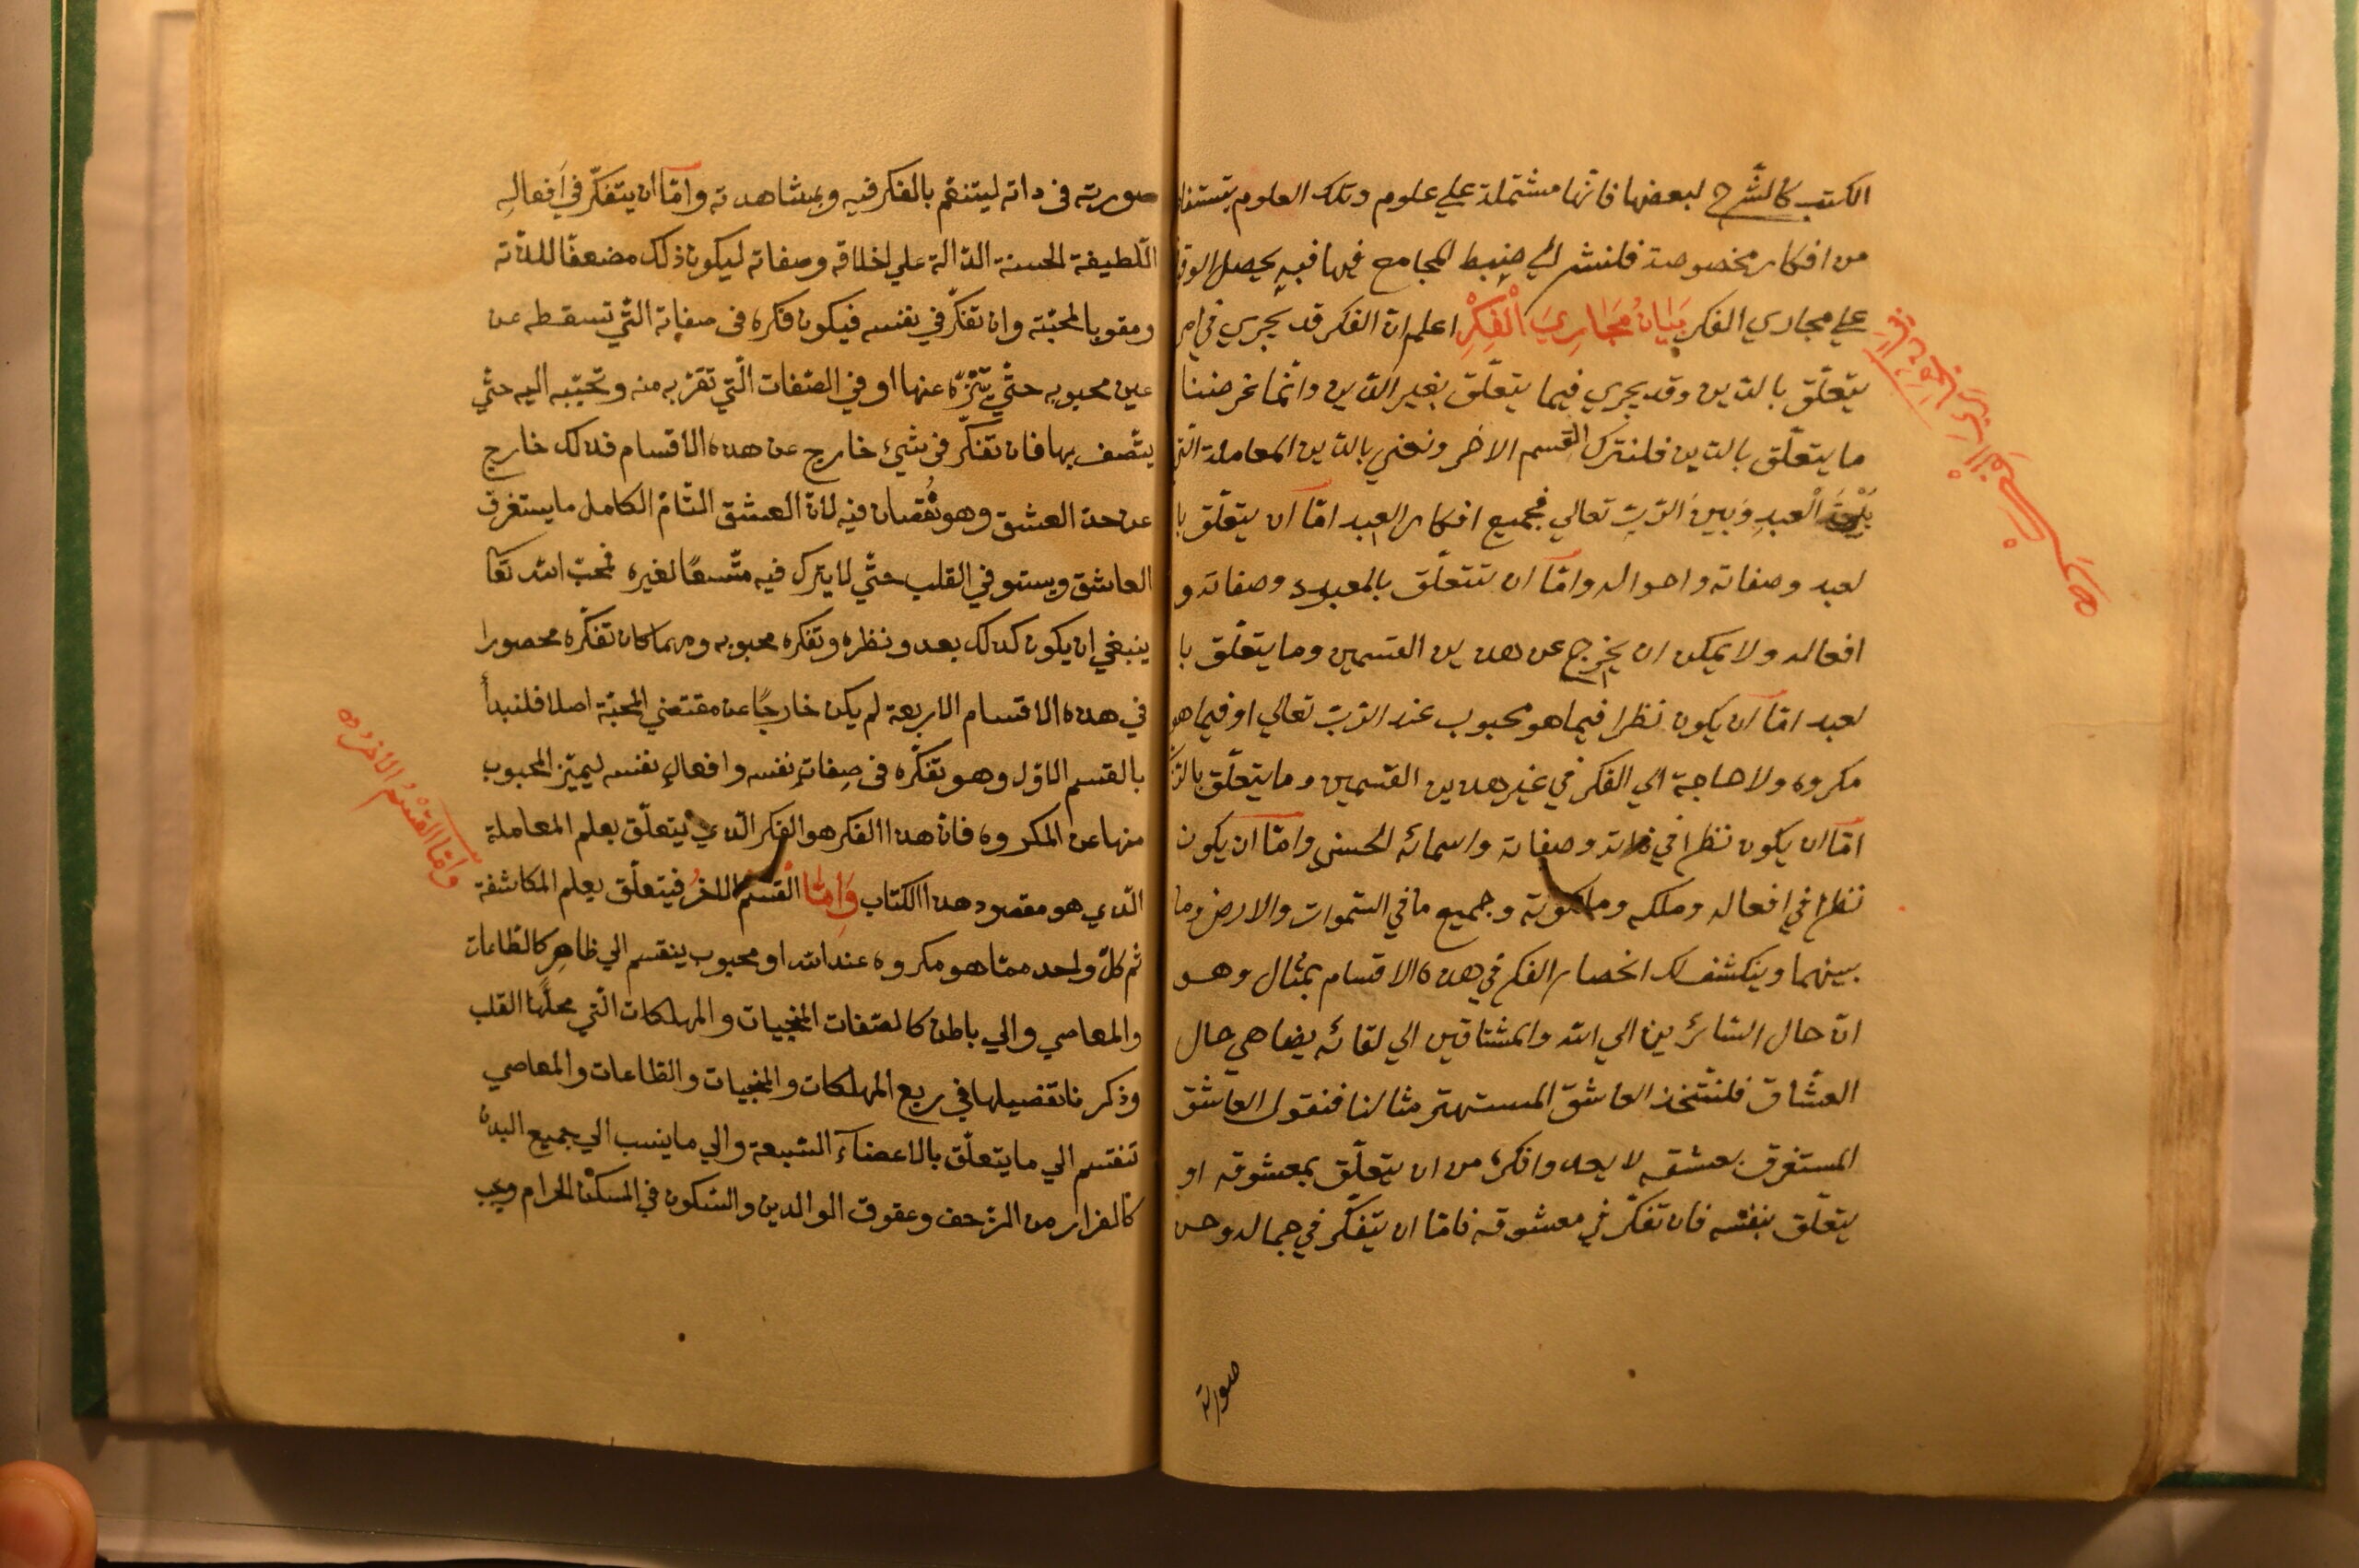 الكتب كالشّرح لبعضها فانّها مشتملة علي علوم وتلك العلوم يستفاد
من افكار مخصوصة فلنشر الي ضبط المجامع فيها فبه يحصل الوقوف
علي مجاري الفكر بَيَانُ مَجَارِيَ الْفِكْرِ اعلم ان الفكر قد يجري في امر
يتعلّق بالدّين وقد يجري فيما يتعلّق بغير الدّين وانّما غرضنا
ما يتعلّق بالدّين فلنترك القسم الاخر ونعني بالدّين المعاملة الّتي
بَيْنَ الْعبدِ وَبَينَ الرّبّ تعالي فجميع افكار العبد امّا ان يتعلّق با
لعبد وصفاته واحواله وامّا ان تتعلّق بالمعبود وصفاته و
افعاله ولا يمكن ان يخرج عن هدين القسمين وما يتعلّق با
لعبد امّا ان يكون نظرا فيما هو محبوب عند الرّبّ تعالي او فيما هو
مكروه ولا حاجة الي الفكر في غير هدين القسمين وما يتعلّق بالرّب
امّا ان يكون نظرا في ذاته وصفاته واسمائه الحسني وامّا ان يكون
نظرا في افعاله وملكه وملكوته وجميع ما في السّموات والارض وما
بينهما وينكشف لك انحصار الفكر في هده الاقسام بمثال وهو
انّ حال السّائرين الي الله والمشتاقين الي لقائه يضاهي حال
العشّاق فلنتّخذ العاشق المستهتر مثالنا فنقول العاشق
المستغرق بعشقه لا يعدوا فكره من ان يتعلّق بمعشوقه او
يتعلّق بنفسه فان تفكّر في معشوقه فامّا ان يتفكّر في جماله وحسن
صورته
صورته في داته ليتنعّم بالفكر فيه وبمشاهدته وامّا ان يتفكّر في اَفعالهِ
اللّطيفة الحسنة الدّالة علي اخلاقه وصفاته ليكون ذلك مضعفًا للدّته
ومقويا لمحبّته وان تفكّر في نفسه فيكون فكره في صفاته الّتي تسقطه عن
عين محبوبه حتّي يتنزّه عنها او في الصّفات الّتي تقرّبه منه وتحبّبه اليه حتّي
يتّصف بها فان تفكّر في شيئ خارج عن هده الاقسام فدلك خارج
عن حدّ العشق وهو نُقصان فيه لانّ العشق التّامّ الكامل ما يستغرق
العاشق ويستوفي القلب حتّي لا يترك فيه متّسعًا لغيره فمحبّ الله تعا
ينبغي ان يكون كدلك يعدو نظره وتفكره محبوبه ومهما كان تفكّره محصورا
في هده الاقسام الاربعة لم يكن خارجًا عن مقتضي المحبّة اصلا فلنبدأ
بالقسم الاوّل وهو تفكّره في صِفاتِ نفسه وافعالِ نفسه ليميّز المحبوب
منها عن المكروه فانّ هدا الفكر هو الفكر الّدي يتعلّق بعلم المعاملة
الّدي هو مقصود هدا الكتاب وَامّا القسم الاخرُ فيتعلّق بعلم المكاشفة
ثم كلّ واحد ممّا هو مكروه عند الله او محبوب ينقسم الي ظاهِر كالطّاعات
والمعاصي والي باطن كالصّفات المنجيات والمهلكات الّتي محلّها القلب
وذكرنا تفصيلها في ربع المهلكات والمنجيات والطّاعات والمعاصي
تنقسم الي ما يتعلّق بالاعضآء السّبعة والي ما ينسب الي جميع البدن
كالفرار من الزّحف وعقوق الوالدين والسّكون في المسكن الحرام ويجب
وَامّا القِسْمُ الاخرُ